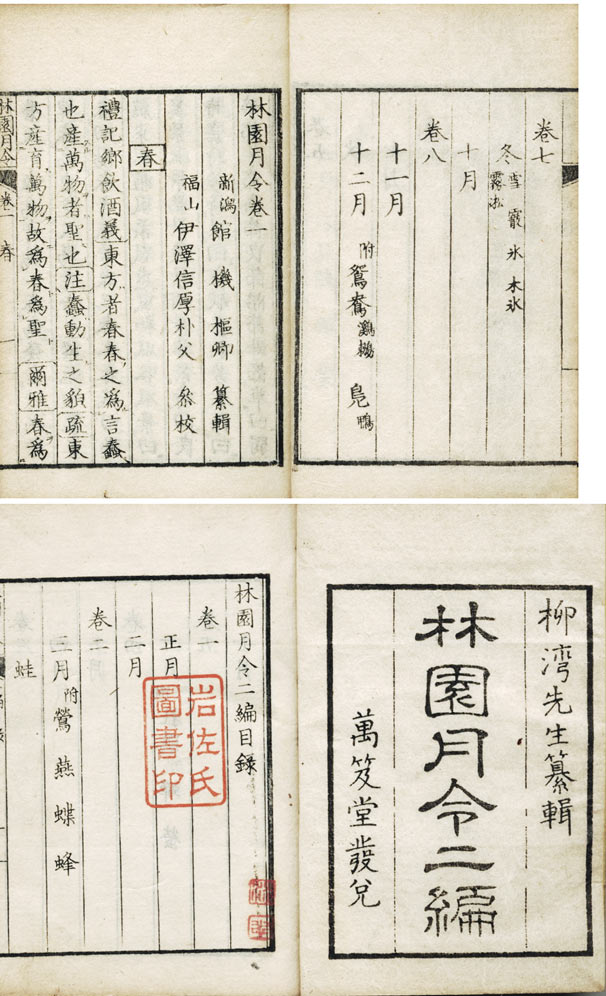 卷七
冬 雪 霰 氷 木氷
霧凇
十月
卷八
十一月
十二月 附 鴛鴦 鸂鶒 鳧 鴨
林園月令卷一
新潟 館 機 樞卿 纂輯
福山 伊澤信厚朴父 叅校
春
禮記鄉飲酒義東方者春春之爲言蠢
也産萬物者聖也注蠢動生之貌疏東
方産育萬物故爲春爲聖爾雅春爲
林園月令 卷一 春
柳湾先生纂輯
林園月令二編
萬笈堂發兌
林園月令二編目錄
卷一
正月
二月
卷二
三月 附 鶯 燕 蝶 蜂
蛙
岩佐氏
圖書印